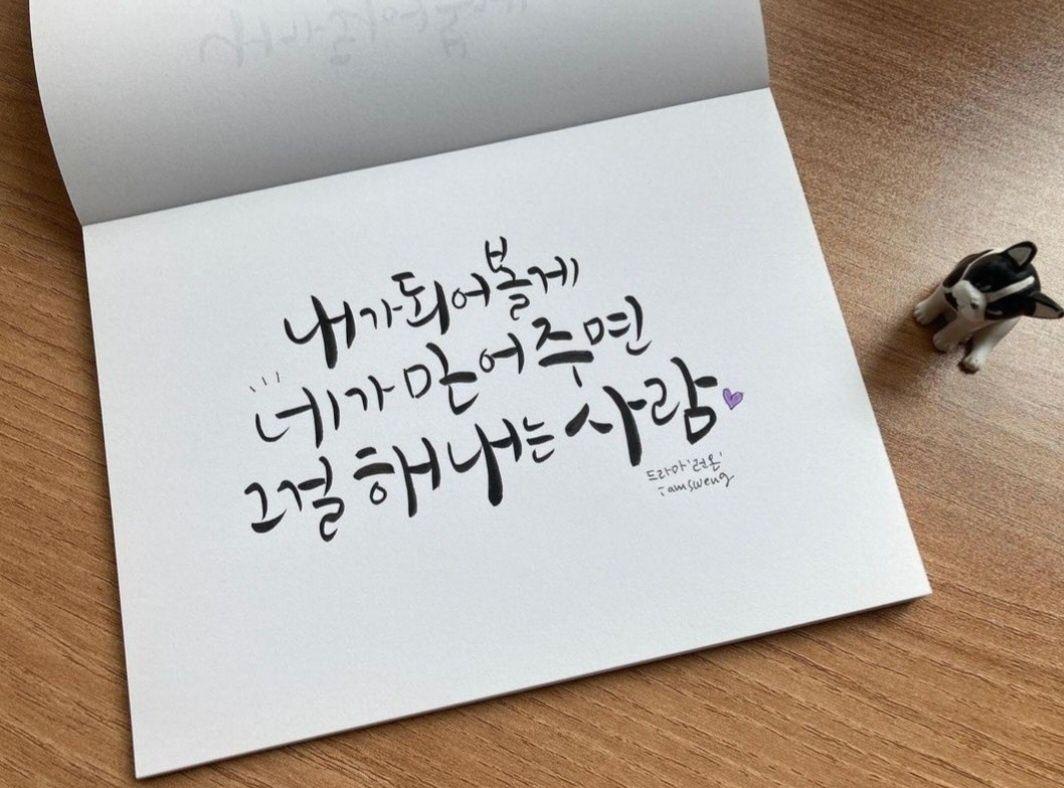 내가 되어볼게
네가 믿어주면
그걸 해내는 사람
드라마 '런온'
iamsweng